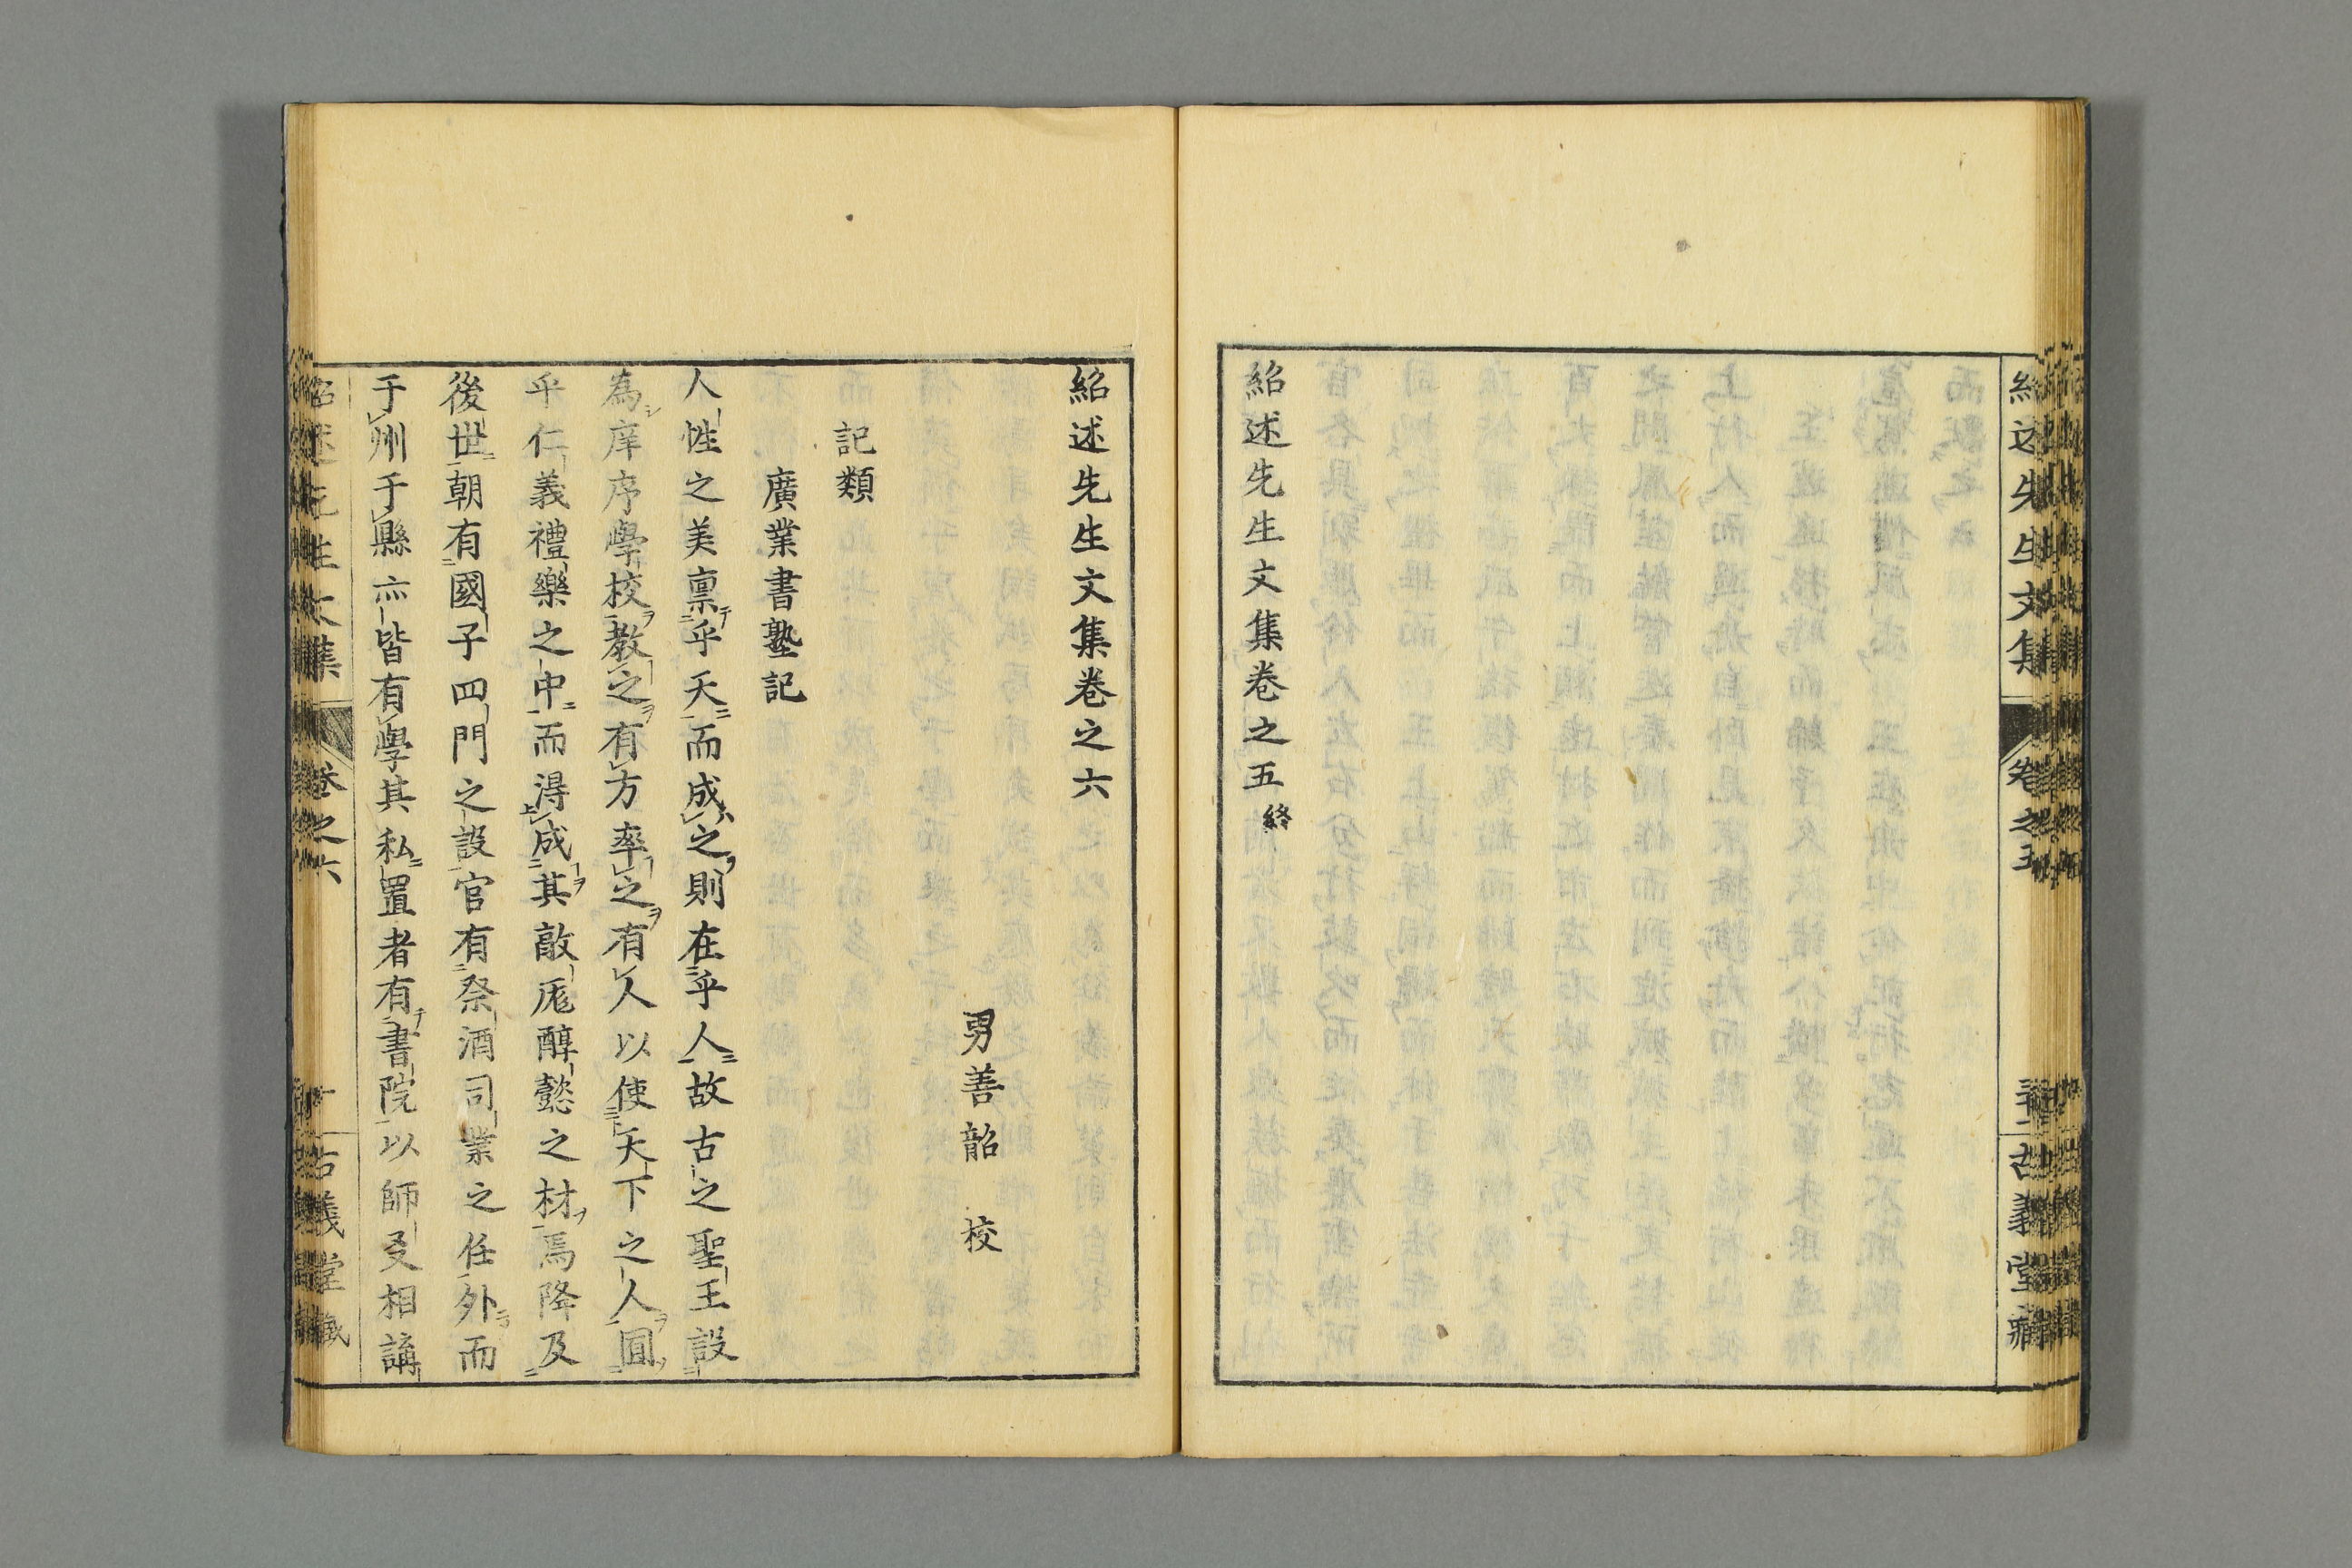 紹述先生文集 卷之五 古義堂藏
紹述先生文集卷之五終
紹述先生文集卷之六
男善韶 校
記類
廣業書塾記
人性之美禀乎天而成之則在乎人故古之聖王設
為庠序學校教之有方率之有人以使天下之人圓
乎仁義禮樂之中而得成其敵厖醇懿之材焉降及
後世朝有國子四門之設官有祭酒司業之任外而
于州于縣亦皆有學其私置者有書院以師友相講
紹述先生文集 卷之六 一 古義堂藏